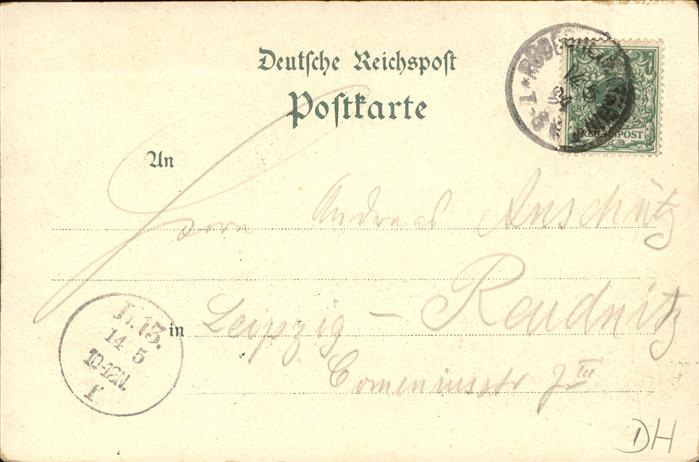 Deutsche Reichspost
Postkarte
REICHSPOST
An
Herrn Andreas Anschütz
in Leipzig – Reudnitz
Comeniusstr III
L.13.
14 5
10-12N.
f.
DH